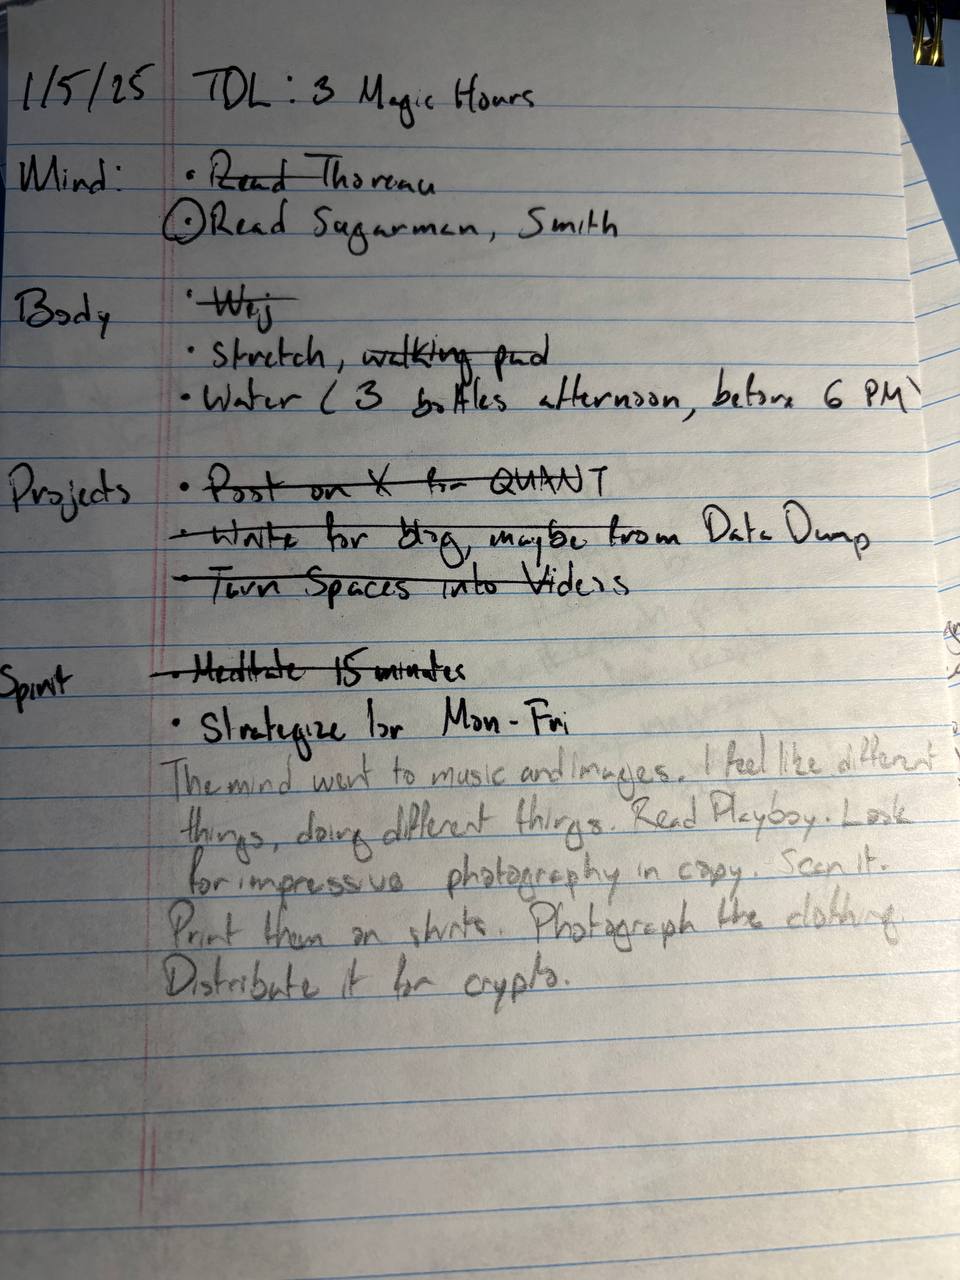 1/5/25 TDL: 3 Magic Hours
Mind: • Read Thoreau
• Read Sugarman, Smith
Body •
• Stretch, walking pad
• Water (3 bottles afternoon, before 6 PM)
Projects • Post on X for QUANT
• Write for blog, maybe from Data Dump
• Turn Spaces into Videos
Spirit • Meditate 15 minutes
• Strategize for Mon-Fri
The mind went to music and images. I feel like different
things, doing different things. Read Playboy. Look
for impressive photography in copy. Scan it.
Print them on shirts. Photograph the clothing.
Distribute it for crypto.